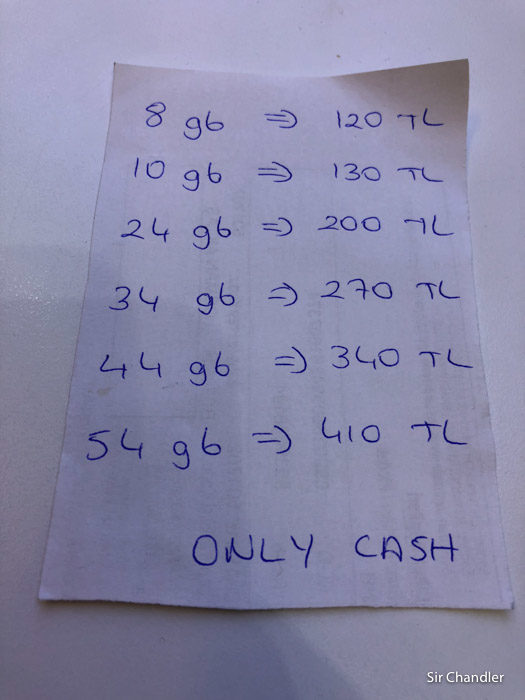 8 gb => 120 TL
10 gb => 130 TL
24 gb => 200 TL
34 gb => 270 TL
44 gb => 340 TL
54 gb => 410 TL
ONLY CASH
Sir Chandler